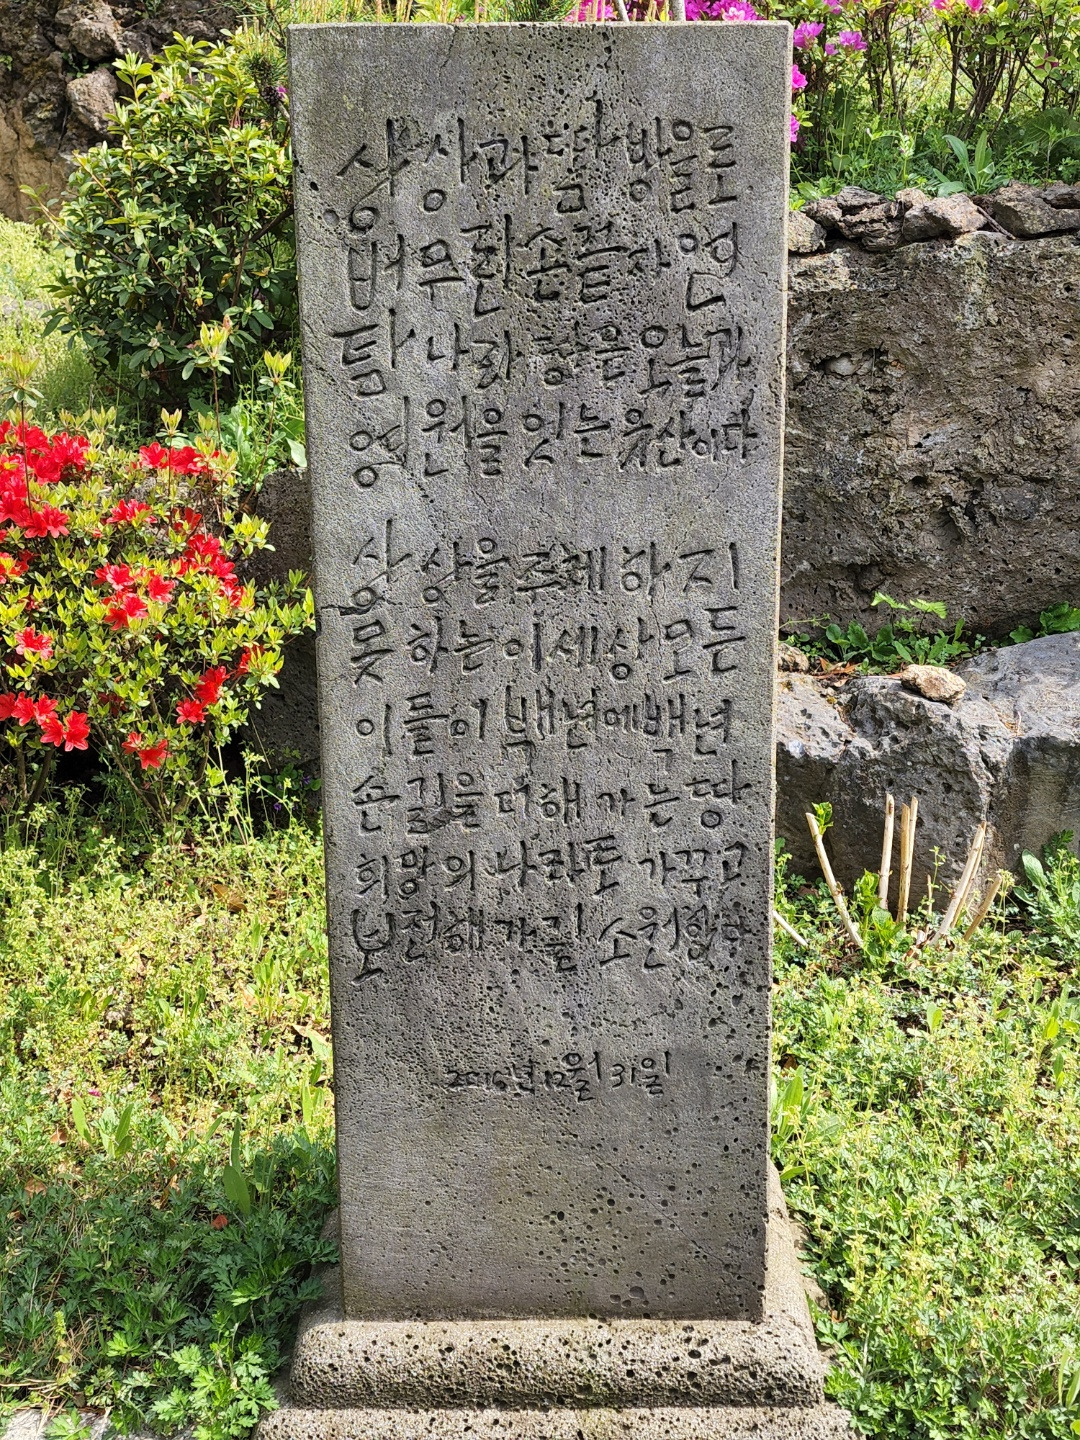 상상과 땀방울로
버무린 손끝 자연
탐나라 향은 오늘과
영원을 잇는 유산이다
상상을 주체하지
못하는 이 세상 모든
이들이 백년에 백년
손길을 더해 가는 땅
희망의 나라로 가꾸고
보전해 가길 소원한다
2016년 12월 31일